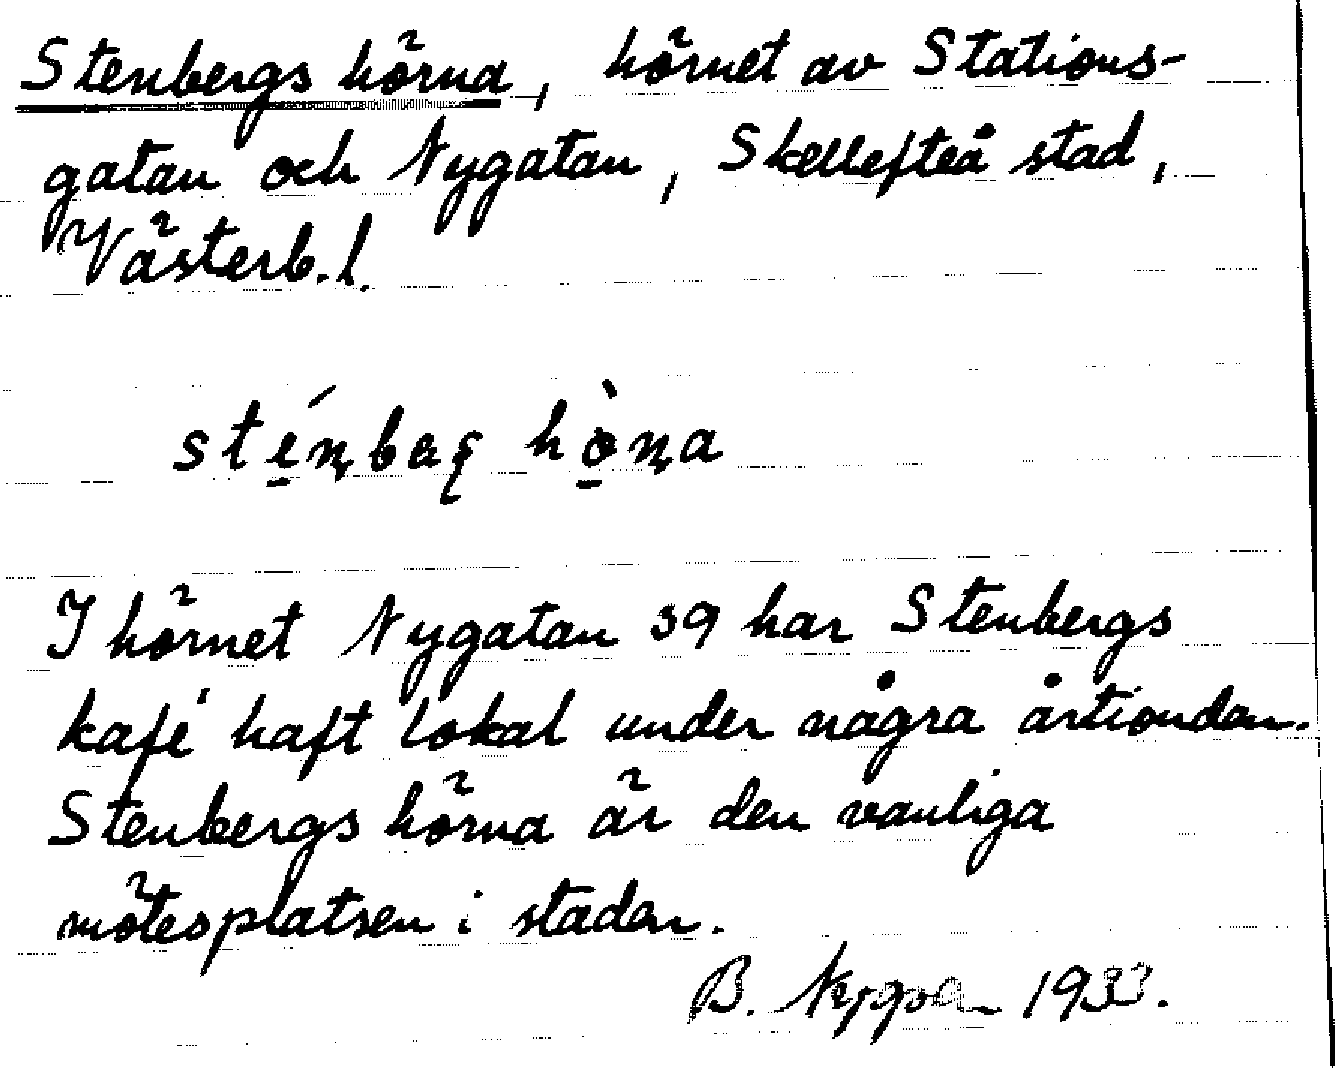 Stenbergs hörna, hörnet av Stations-
gatan och Nygatan, Skellefteå stad,
Västerb. l.
I hörnet Nygatan 39 har Stenbergs
kafé haft lokal under några årtionden.
Stenbergs hörna är den vanliga
mötesplatsen i staden.
B. 1933.